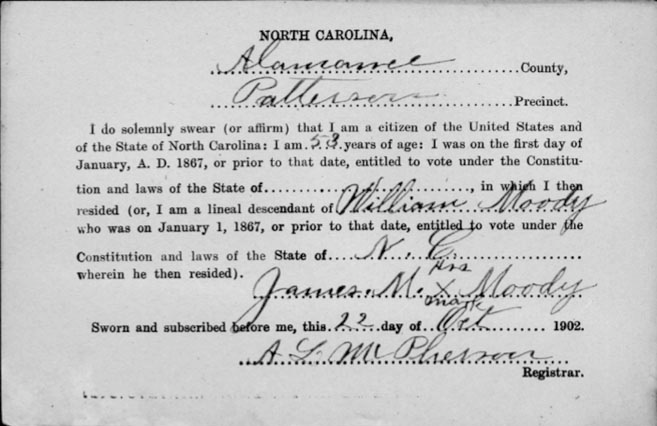 NORTH CAROLINA,
Alamance County,
Patterson Precinct.
I do solemnly swear (or affirm) that I am a citizen of the United States and
of the State of North Carolina: I am 53 years of age: I was on the first day of
January, A. D. 1867, or prior to that date, entitled to vote under the Constitu-
tion and laws of the State of, in which I then
resided (or, I am a lineal descendant of William Moody
who was on January 1, 1867, or prior to that date, entitled to vote under the
Constitution and laws of the State of N. C.
wherein he then resided).
His
James. M. X Moody
mark
Sworn and subscribed before me, this 22 day of Oct 1902.
A L McPherson
Registrar.